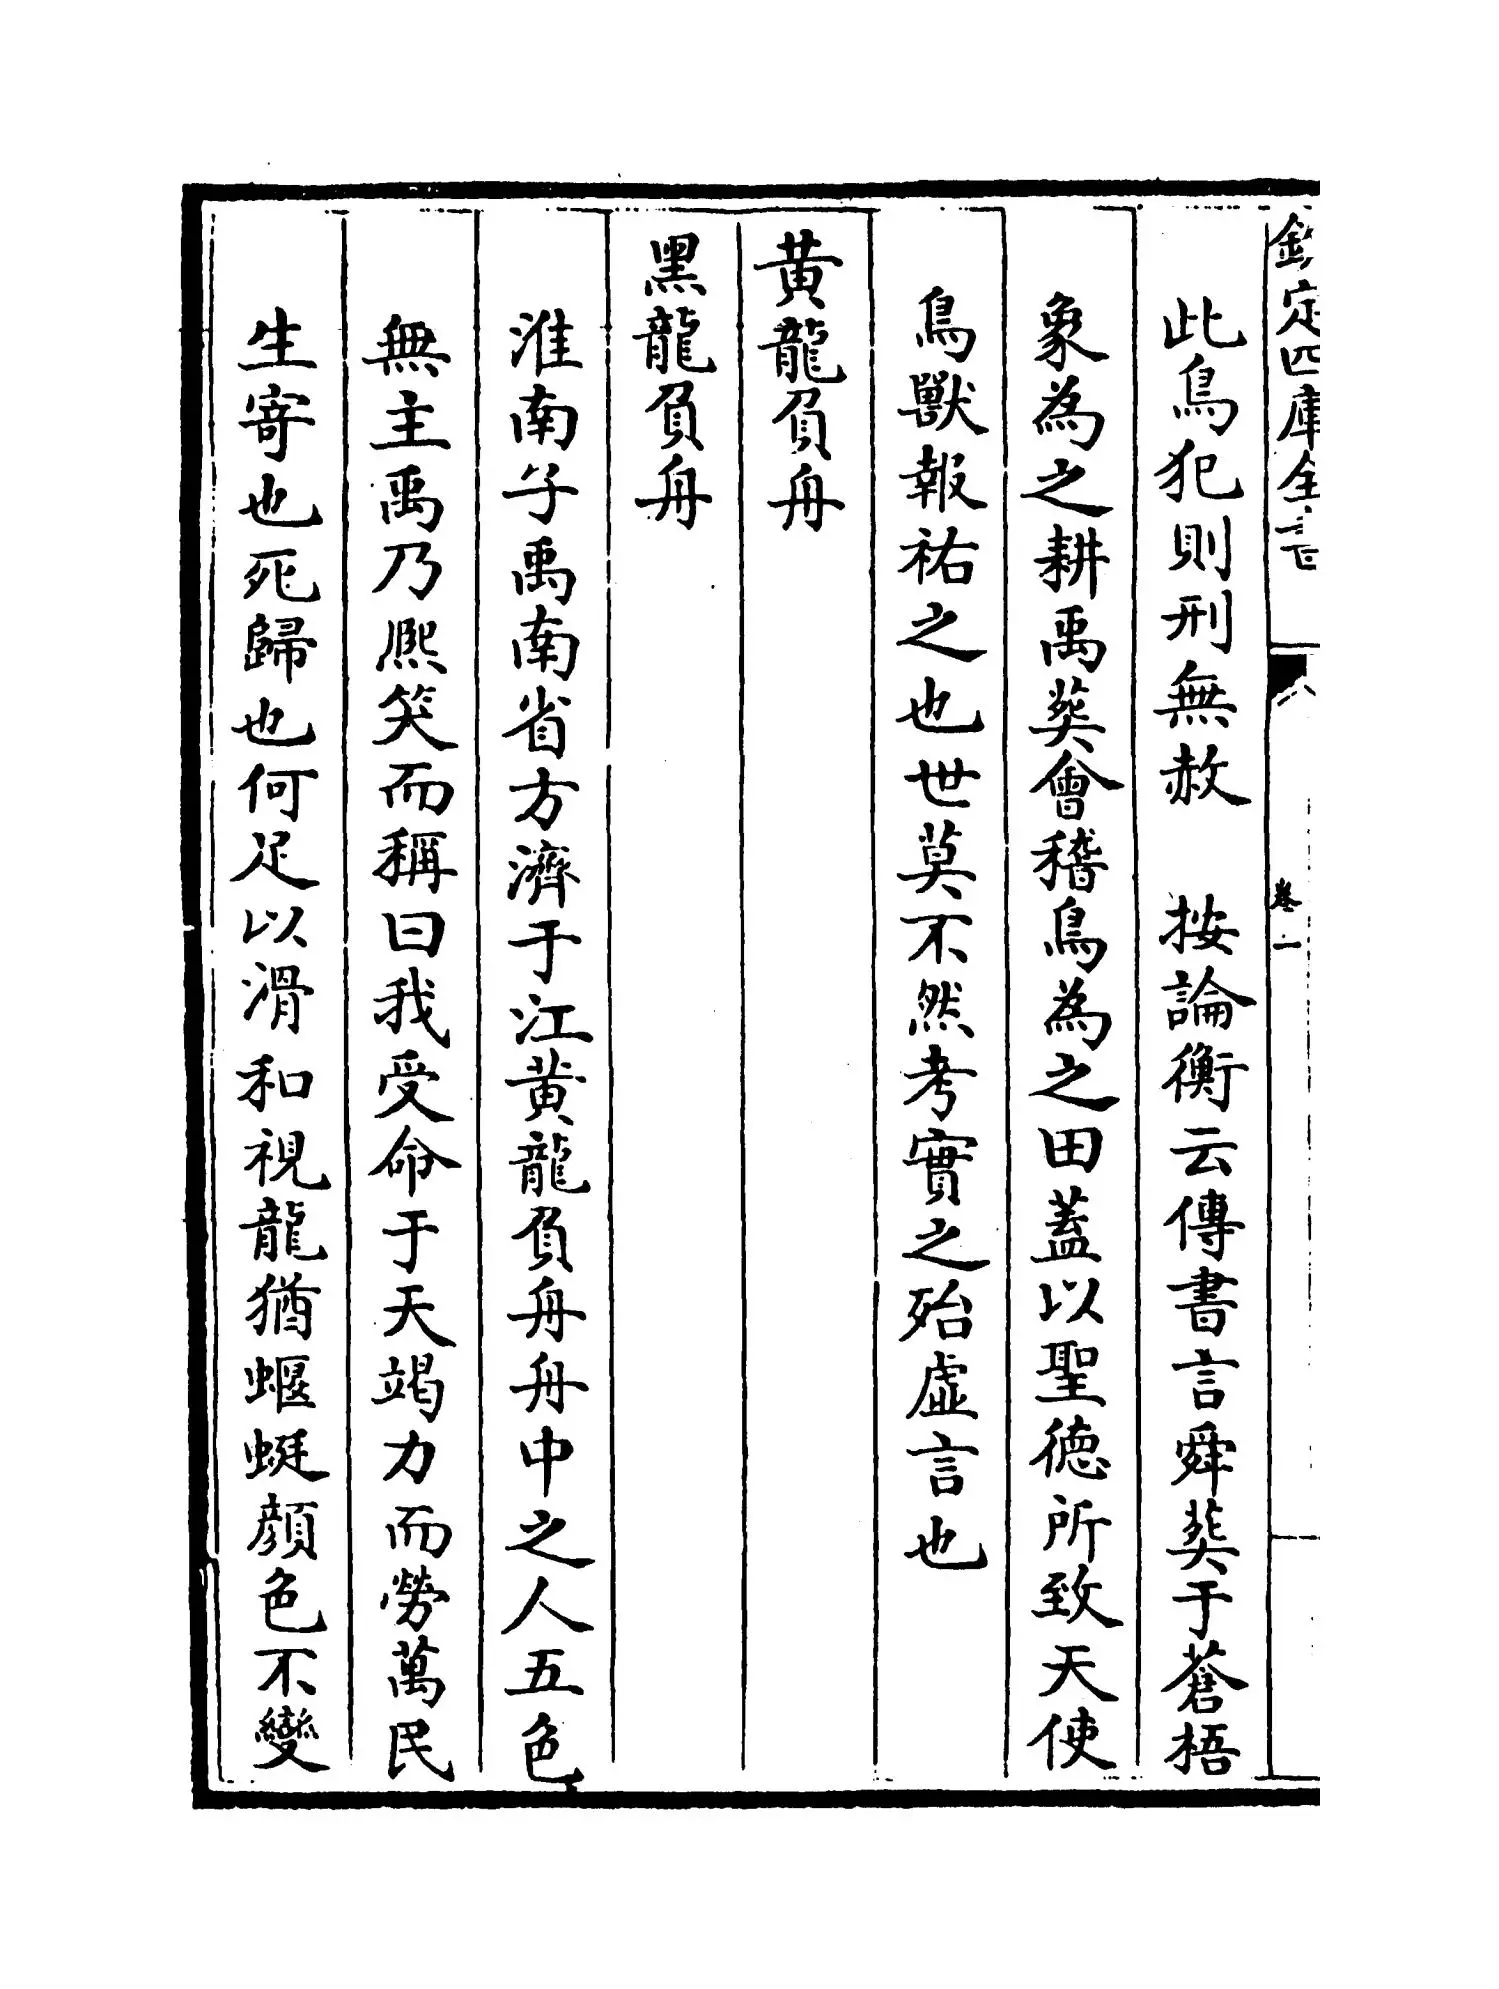 欽定四庫全書
卷一
此鳥犯則刑無赦　按論衡云傳書言舜葬于蒼梧
象為之耕禹葬會稽鳥為之田蓋以聖德所致天使
鳥獸報祐之也世莫不然考實之殆虛言也
黃龍負舟
黑龍負舟
淮南子禹南省方濟于江黃龍負舟舟中之人五色
無主禹乃熈笑而稱曰我受命于天竭力而勞萬民
生寄也死歸也何足以滑和視龍猶蝘蜓顔色不變